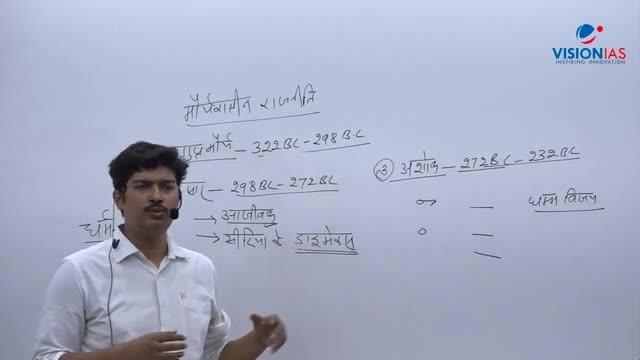 VISIONIAS
INSPIRING INNOVATION
मौर्यकालीन राजनीति
मौर्य – 322BC – 298 B.C
298BC – 272BC
→ आजीवक
→ सीरिया के डाइमेकस
धर्म
③ अशोक – 272BC – 232BC
धम्म विजय